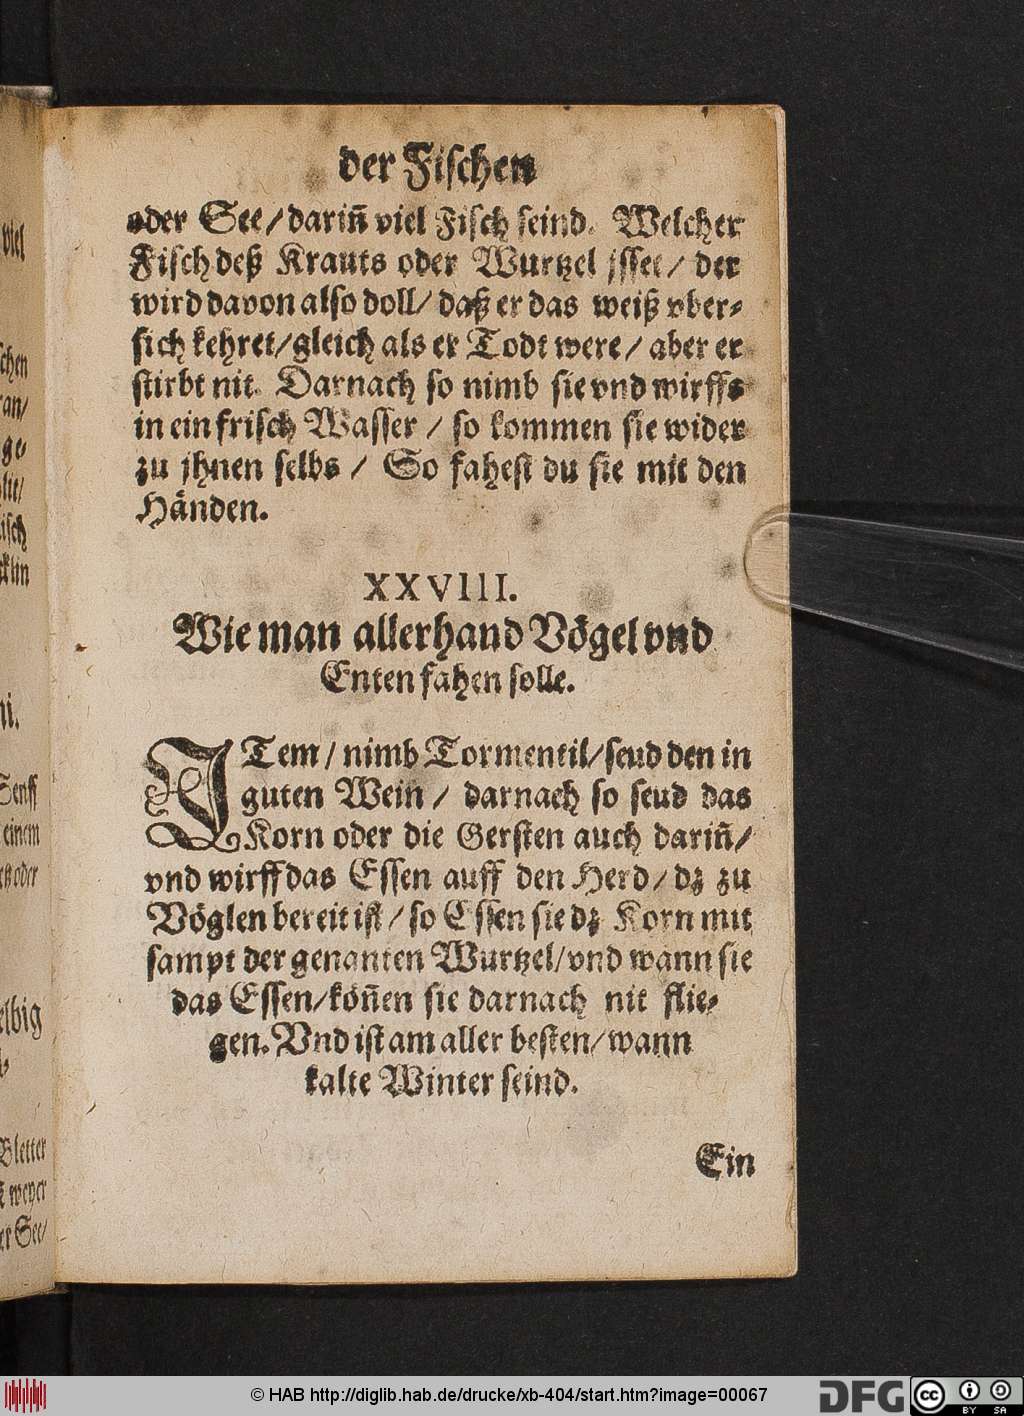 viel
schen
ran/
ge-
lit/
isch
klin
ni.
Senff
einem
oder
elbig
Bletter
weyer
er See/
der Fischen
oder See/ dariñ viel Fisch seind. Welcher
Fisch deß Krauts oder Wurtzel jsset/ der
wird davon also doll/ daß er das weiß vber-
sich kehret/ gleich als er Todt were/ aber er
stirbt nit. Darnach so nimb sie vnd wirffs
in ein frisch Wasser / so kommen sie wider
zu jhnen selbs / So fahest du sie mit den
Händen.
XXVIII.
Wie man allerhand Vögel vnd
Enten fahen solle.
ITem / nimb Tormentil/ seud den in
guten Wein / darnach so seud das
Korn oder die Gersten auch dariñ/
vnd wirff das Essen auff den Herd/ dz zu
Vöglen bereit ist/ so Essen sie dz Korn mit
sampt der genanten Wurtzel/ vnd wann sie
das Essen/ köñen sie darnach nit flie-
gen. Vnd ist am aller besten/ wann
kalte Winter seind.
Ein
© HAB http://diglib.hab.de/drucke/xb-404/start.htm?image=00067
DFG
cc
BY SA